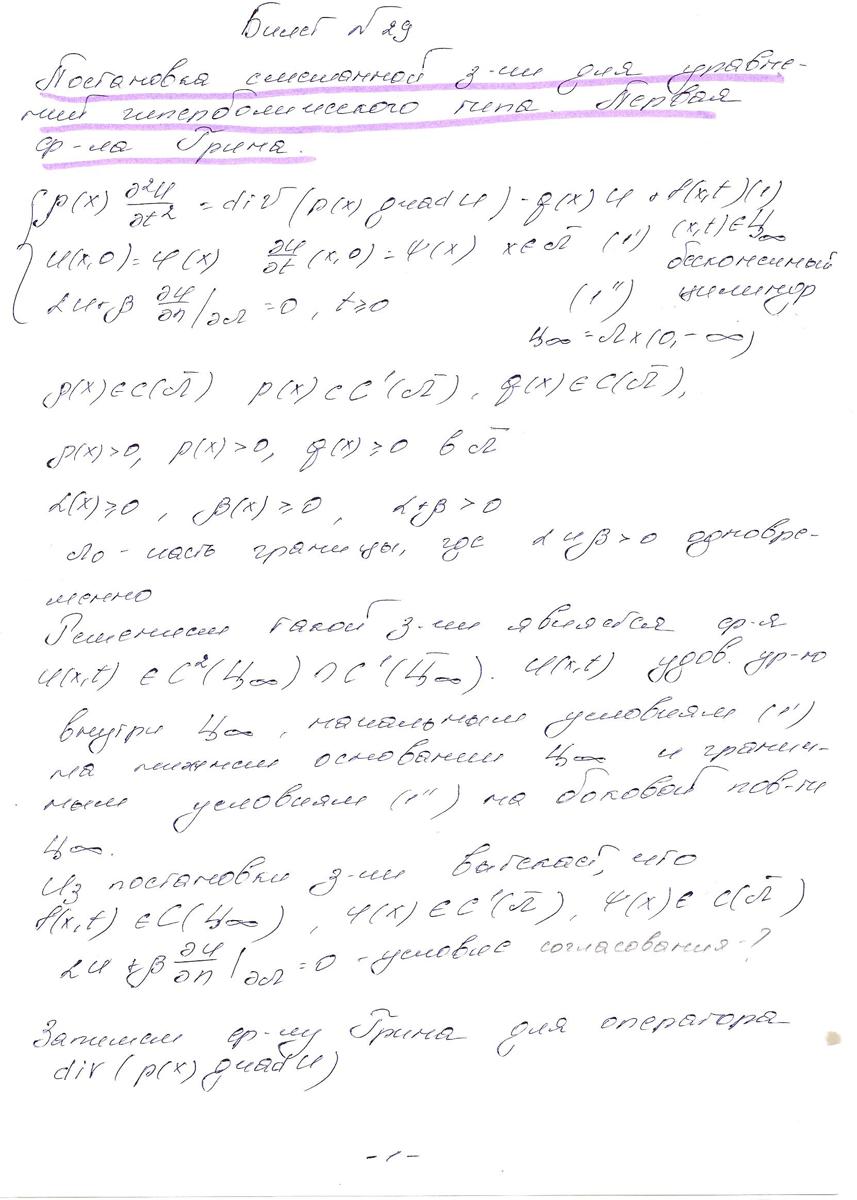 Билет №29
Постановка смешанной з-чи для уравне-
ний гиперболического типа. Первая
ф-ла Грина.
ρ(x) ∂²u/∂t² = div(p(x) grad u) - q(x) u + f(x,t) (1)
u(x,0) = φ(x) ∂u/∂t (x,0) = ψ(x) x∈Ω̄ (1') (x,t)∈Ц∞
бесконечный
αu+β ∂u/∂n |∂Ω = 0, t≥0 (1'') цилиндр
Ц∞ = Ω×(0,-∞)
ρ(x)∈C(Ω̄) p(x)∈C'(Ω̄), q(x)∈C(Ω̄),
ρ(x)>0, p(x)>0, q(x)≥0 в Ω̄
α(x)≥0, β(x)≥0, α+β>0
Ω₀ - часть границы, где α и β>0 одновре-
менно
Решением такой з-чи является ф-я
u(x,t) ∈C²(Ц∞)∩C'(Ц̄∞). u(x,t) удов. ур-ю
внутри Ц∞, начальным условиям (1')
на нижнем основании Ц∞ и гранич-
ным условиям (1'') на боковой пов-ти
Ц∞.
Из постановки з-чи вытекает, что
f(x,t)∈C(Ц∞), φ(x)∈C'(Ω̄), ψ(x)∈C(Ω̄)
αu+β ∂u/∂n |∂Ω = 0 - условие согласования-?
Запишем ф-лу Грина для оператора
div(p(x) grad u)
-1-